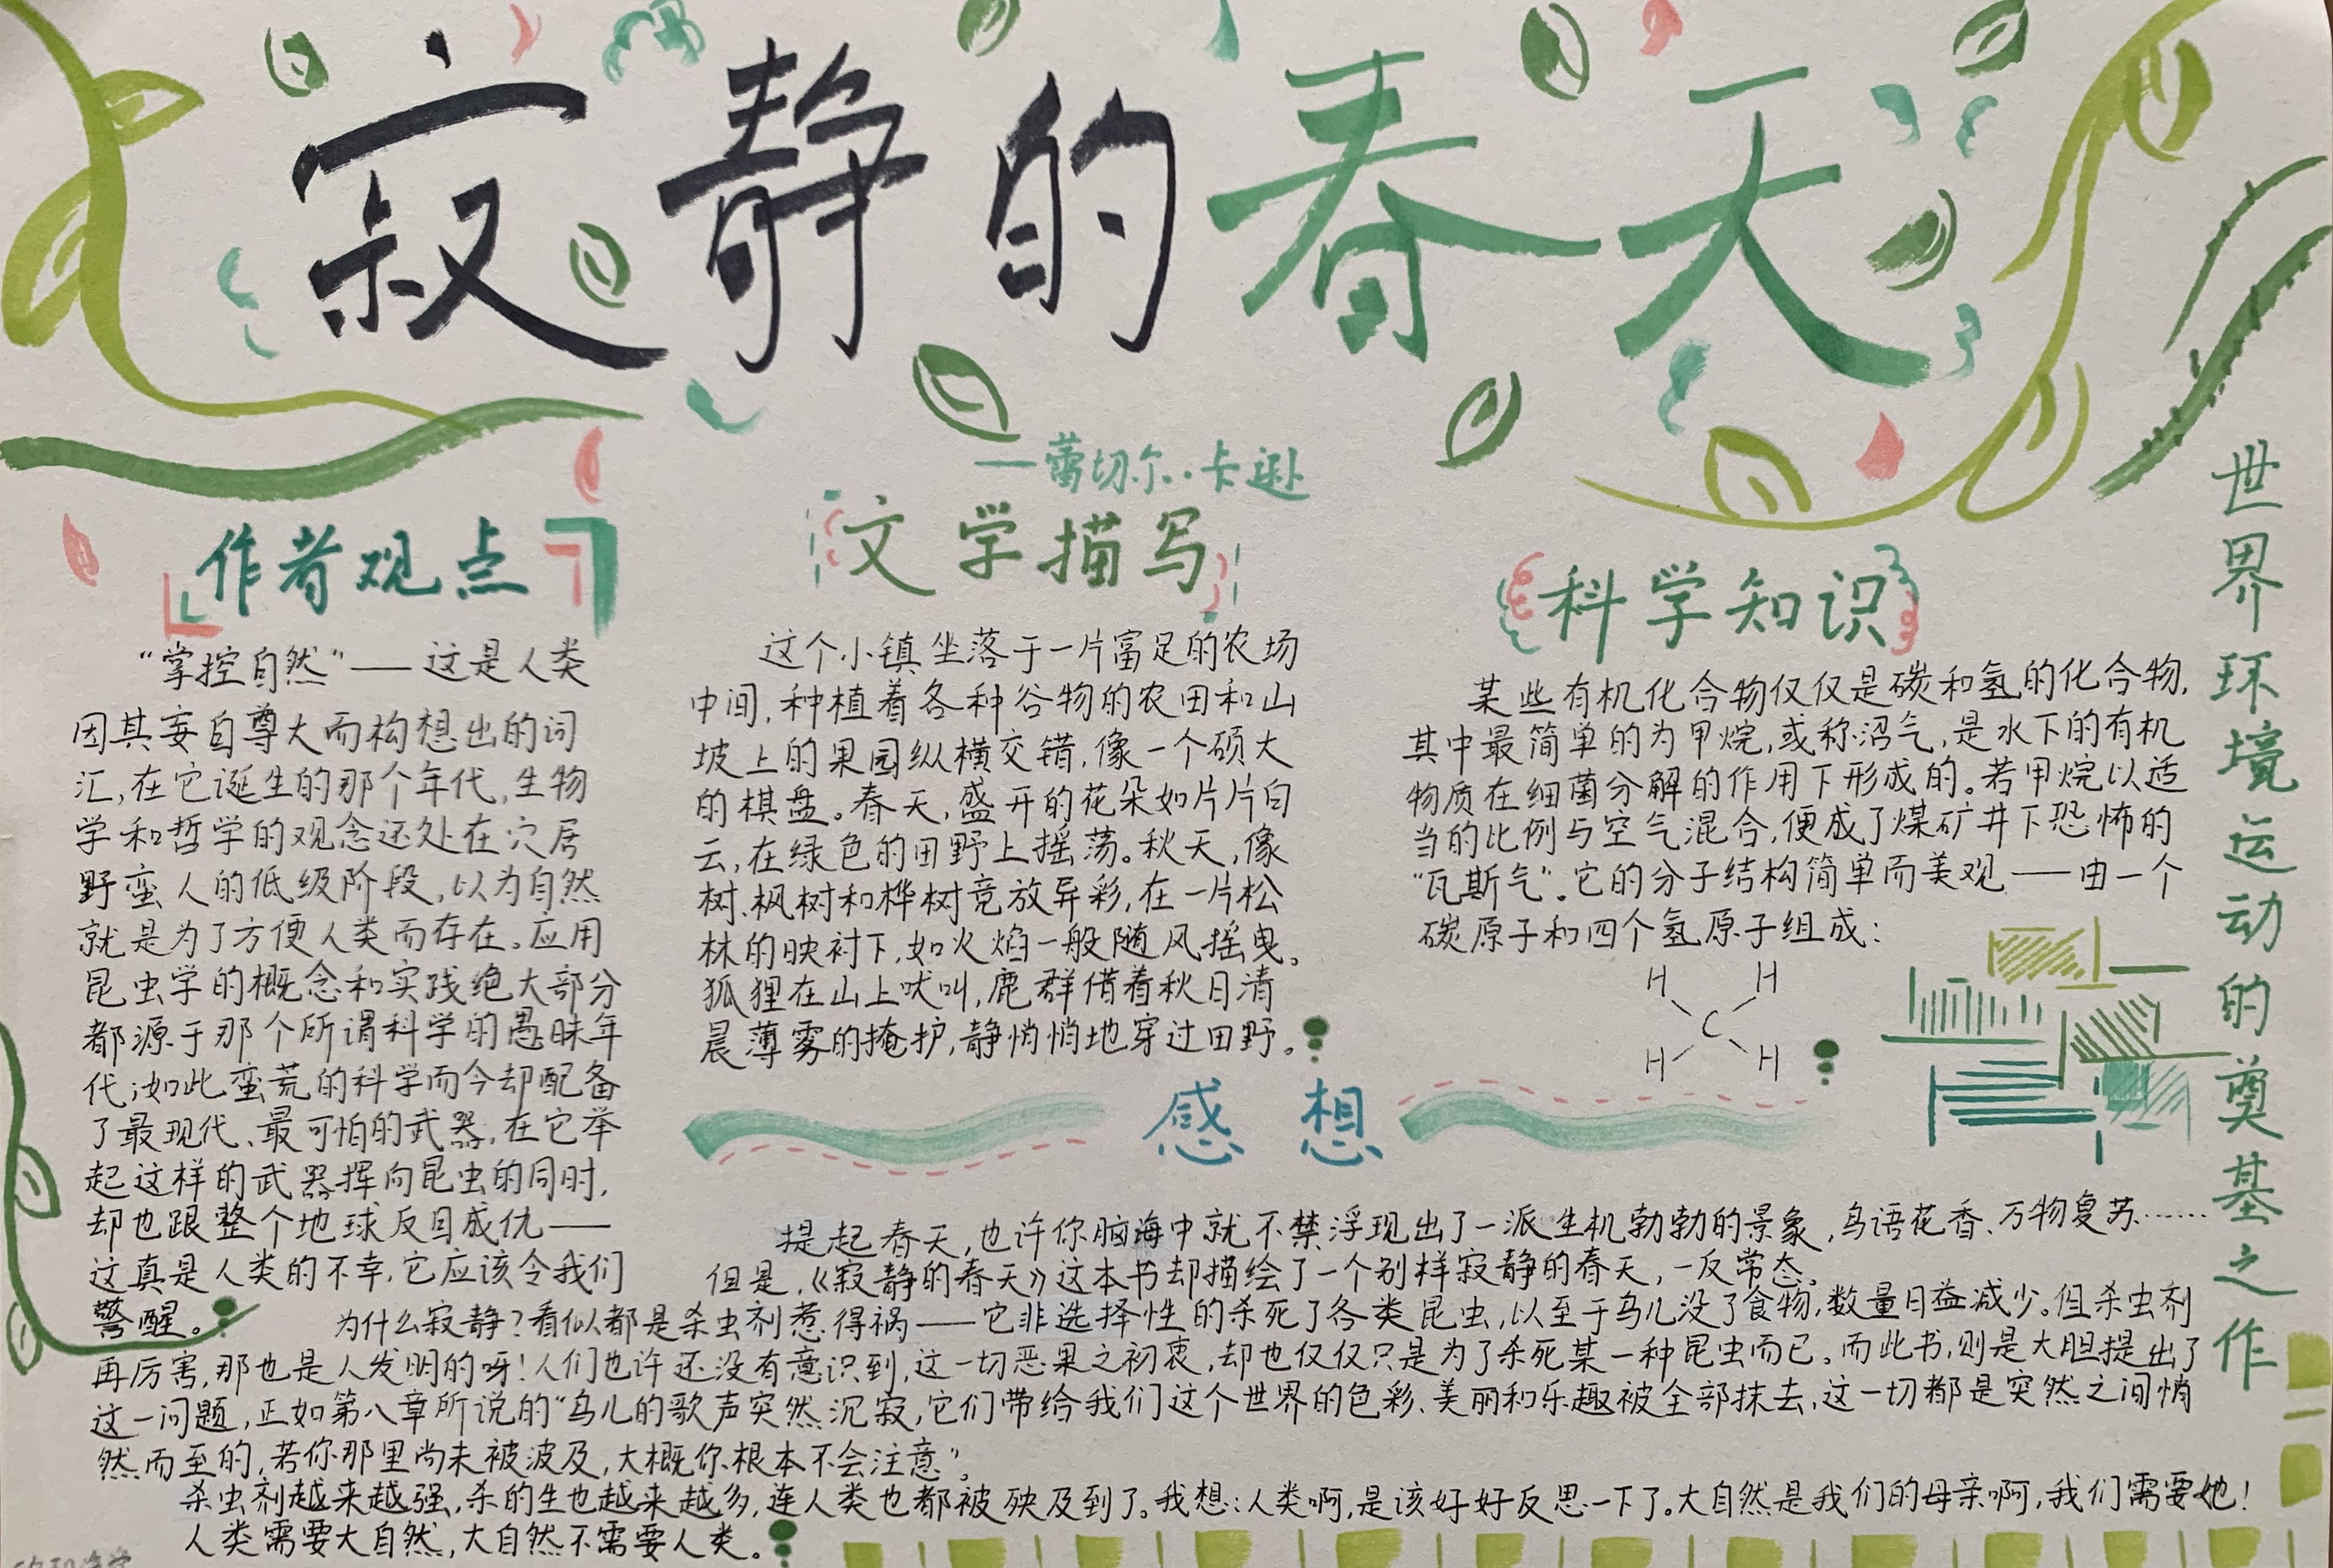 寂静的春天
——蕾切尔·卡逊
作者观点
“掌控自然”——这是人类
因其妄自尊大而构想出的词
汇,在它诞生的那个年代,生物
学和哲学的观念还处在穴居
野蛮人的低级阶段,以为自然
就是为了方便人类而存在。应用
昆虫学的概念和实践绝大部分
都源于那个所谓科学的愚昧年
代;如此蛮荒的科学而今却配备
了最现代、最可怕的武器,在它举
起这样的武器挥向昆虫的同时,
却也跟整个地球反目成仇——
这真是人类的不幸,它应该令我们
警醒。
文学描写
这个小镇坐落于一片富足的农场
中间,种植着各种谷物的农田和山
坡上的果园纵横交错,像一个硕大
的棋盘。春天,盛开的花朵如片片白
云,在绿色的田野上摇荡。秋天,像
树、枫树和桦树竞放异彩,在一片松
林的映衬下,如火焰一般随风摇曳。
狐狸在山上吠叫,鹿群借着秋日清
晨薄雾的掩护,静悄悄地穿过田野。
科学知识
某些有机化合物仅仅是碳和氢的化合物,
其中最简单的为甲烷,或称沼气,是水下的有机
物质在细菌分解的作用下形成的。若甲烷以适
当的比例与空气混合,便成了煤矿井下恐怖的
“瓦斯气”。它的分子结构简单而美观——由一个
碳原子和四个氢原子组成:
H H
C
H H
世界环境运动的奠基之作
感想
提起春天,也许你脑海中就不禁浮现出了一派生机勃勃的景象,鸟语花香、万物复苏……
但是,《寂静的春天》这本书却描绘了一个别样寂静的春天,一反常态。
为什么寂静?看似都是杀虫剂惹得祸——它非选择性的杀死了各类昆虫,以至于鸟儿没了食物,数量日益减少。但杀虫剂
再厉害,那也是人发明的呀!人们也许还没有意识到,这一切恶果之初衷,却也仅仅只是为了杀死某一种昆虫而已。而此书,则是大胆提出了
这一问题,正如第八章所说的“鸟儿的歌声突然沉寂,它们带给我们这个世界的色彩、美丽和乐趣被全部抹去,这一切都是突然之间悄
然而至的,若你那里尚未被波及,大概你根本不会注意”。
杀虫剂越来越强,杀的生也越来越多,连人类也都被殃及到了。我想:人类啊,是该好好反思一下了。大自然是我们的母亲啊,我们需要她!
人类需要大自然,大自然不需要人类。